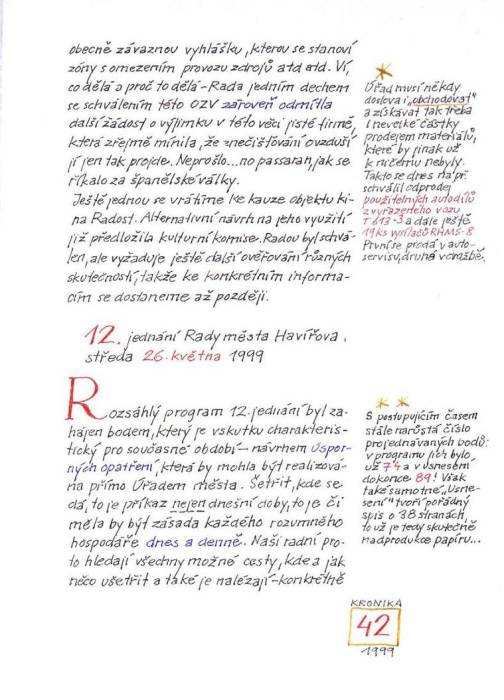 obecně závaznou vyhlášku, kterou se stanoví
zóny s omezením provozu zdrojů atd atd. Ví,
co dělá a proč to dělá – Rada jedním dechem
se schválením této OZV zároveň odmítla
další žádost o výjimku v této věci jisté firmě,
která zřejmě mínila, že znečišťování ovzduší
jí jen tak projde. Neprošlo... no passaran, jak se
říkalo za španělské války.
Ještě jednou se vrátíme ke kauze objektu ki-
na Radost. Alternativní návrh na jeho využití
již předložila kulturní komise. Radou byl schvá-
len, ale vyžaduje ještě další ověřování různých
skutečností, takže ke konkretním informa-
cím se dostaneme až později.
*
Úřad musí někdy
doslova i „obchodovat"
a získávat tak třeba
i nevelké částky
prodejem materiálů,
které by jinak už
k ničemu nebyly.
Takto se dnes např.
schválil odprodej
použitelných autodílů
z vyřazeného vozu
T 613-3 a dále ještě
19 ks vysílačů RAMS-8
První se prodá v auto-
servisu, druhá v dražbě.
12. jednání Rady města Havířova,
středa 26. května 1999
Rozsáhlý program 12. jednání byl za-
hájen bodem, který je vskutku charakteris-
tický pro současné období – návrhem úspor-
ných opatření, která by mohla být realizová-
na přímo Úřadem města. Šetřit, kde se
dá, to je příkaz nejen dnešní doby, to je či
měla by být zásada každého rozumného
hospodáře dnes a denně. Naši radní pro-
to hledají všechny možné cesty, kde a jak
něco ušetřit a také je nalézají – konkrétně
* *
S postupujícím časem
stále narůstá číslo
projednávaných bodů:
v programu jich bylo
už 74 a v usnesení
dokonce 89! Však
také samotné „Usne-
sení" tvoří pořádný
spis o 38 stranách,
to už je tedy skutečně
nadprodukce papíru...
KRONIKA
42
1999